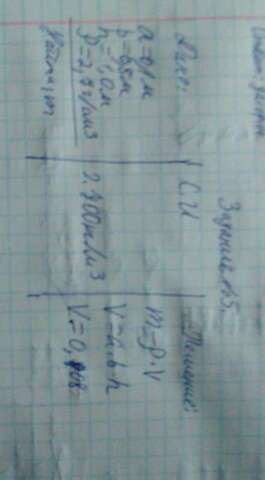 Задание №3.
Дано:
a=0,1м
b=0,8м
h=1,0м
ρ=2,7г/см3
Найти: m
СИ
2.700кг/м3
Решение:
m=ρ·V
V=a·b·h
V=0,108